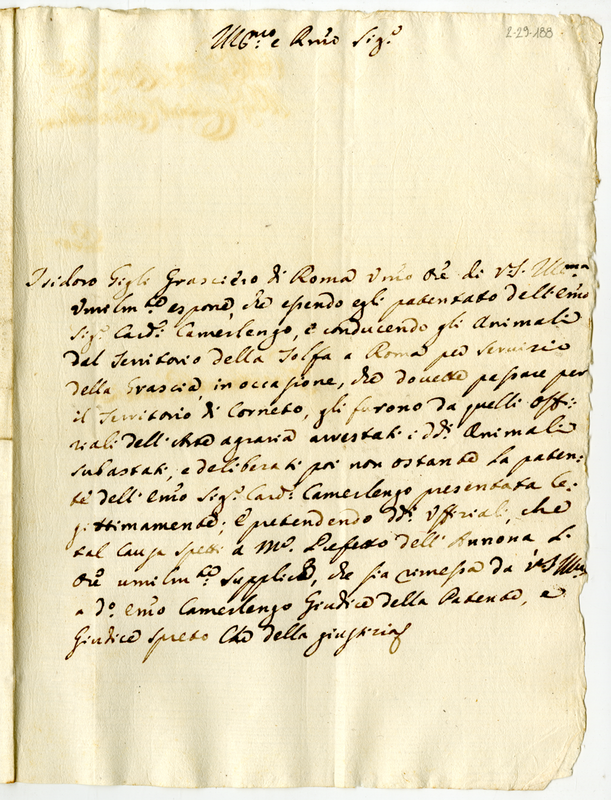 2-29-188
Ill.mo e Rmo Sig.e
Isidoro Gigli Grasciero di Roma Umo Ore di V.S. Ill.ma
Umilm.te espone, che essendo egli patentato dell'Emo
Sig.e Card. Camerlengo, e conducendo gli Animali
dal Territorio della Tolfa a Roma per servizio
della Grascia, in occasione, che dovette passare per
il Territorio di Corneto, gli furono da quelli Offi-
ziali dell'Arte agraria arrestati i dd. Animali
subastati, e deliberati poi non ostante la paten-
te dell'Emo Sig.e Card. Camerlengo presentata le-
gittimamente; E pretendendo dd. Uffiziali, che
tal Causa spetti a M.e Prefetto dell'Annona L.
Ore umilm.te supplica, che sia rimessa da V.S. Ill.ma
a d.o Emo Camerlengo Giudice della Patente, e
Giudice Che della giustizia